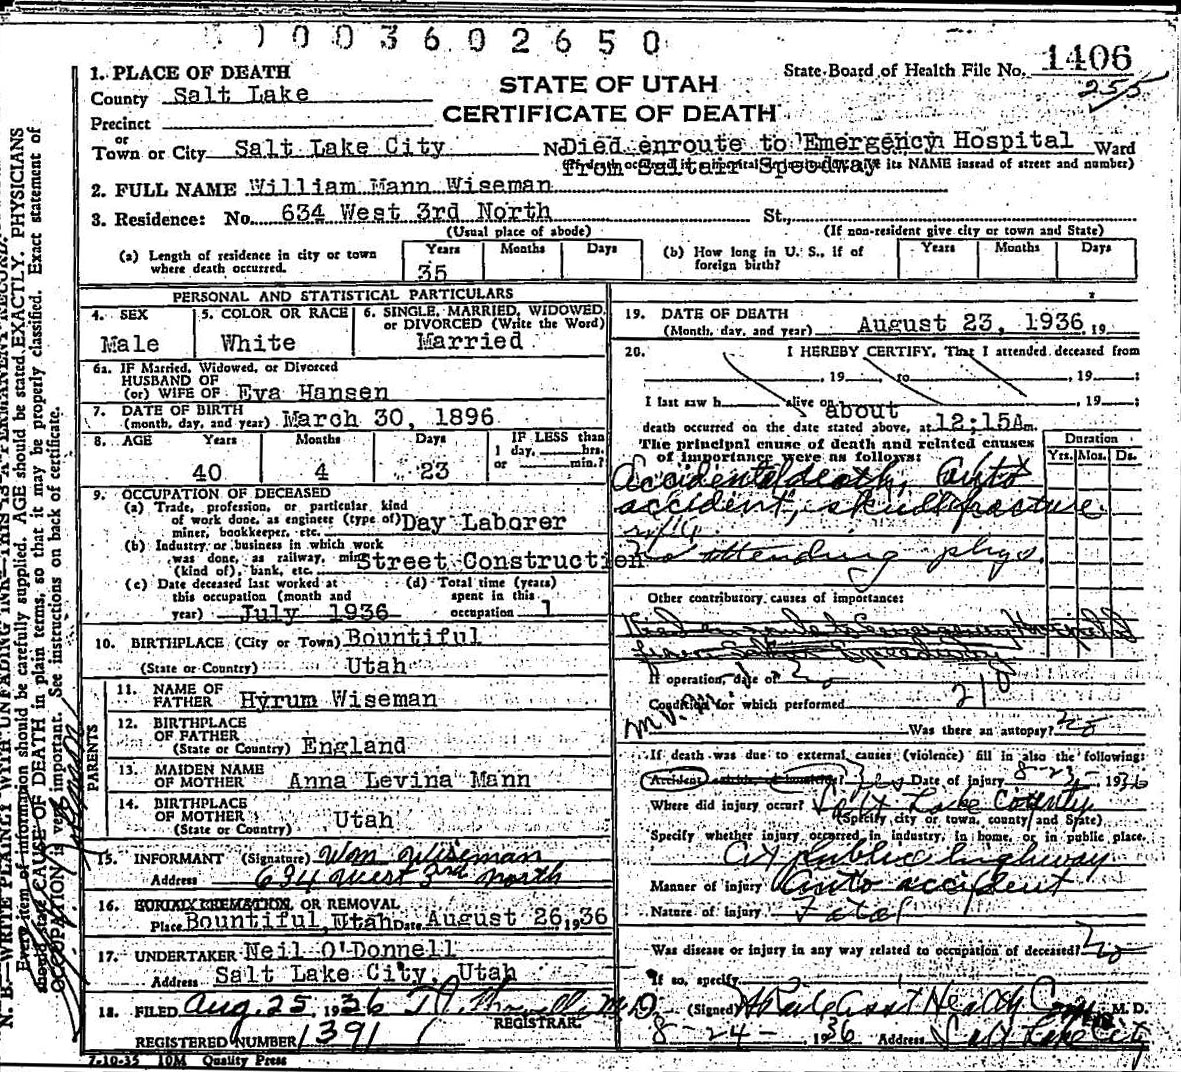 1003602650
1. PLACE OF DEATH
County Salt Lake
STATE OF UTAH
CERTIFICATE OF DEATH
State Board of Health File No. 1406
255
Precinct
or
Town or City Salt Lake City No Died enroute to Emergency Hospital Ward
from Saltair Speedway its NAME insead of street and number)
2. FULL NAME William Mann Wiseman
3. Residence: No. 634 West 3rd North St.,
(Usual place of abode) (If non-resident give city or town and State)
(a) Length of residence in city or town where death occurred. Years 35 Months Days
(b) How long in U. S., if of foreign birth? Years Months Days
PERSONAL AND STATISTICAL PARTICULARS
4. SEX Male
5. COLOR OR RACE White
6. SINGLE, MARRIED, WIDOWED, or DIVORCED (Write the Word) Married
6a. IF Married, Widowed, or Divorced
HUSBAND OF
(or) WIFE OF Eva Hansen
7. DATE OF BIRTH
(month, day, and year) March 30, 1896
8. AGE Years 40 Months 4 Days 23
IF LESS than
1 day, hrs.
or min.?
9. OCCUPATION OF DECEASED
(a) Trade, profession, or particular kind
of work done, as engineer (type of)
miner, bookkeeper, etc. Day Laborer
(b) Industry or business in which work
was done, as railway, mine
(kind of), bank, etc. Street Construction
(c) Date deceased last worked at
this occupation (month and
year) July 1936
(d) Total time (years)
spent in this
occupation 1
10. BIRTHPLACE (City or Town) Bountiful
(State or Country) Utah
PARENTS
11. NAME OF FATHER Hyrum Wiseman
12. BIRTHPLACE OF FATHER
(State or Country) England
13. MAIDEN NAME OF MOTHER Anna Levina Mann
14. BIRTHPLACE OF MOTHER
(State or Country) Utah
15. INFORMANT (Signature) Wm Wiseman
Address 634 West 3rd North
16. BURIAL, CREMATION, OR REMOVAL
Place Bountiful, Utah Date August 26, 1936
17. UNDERTAKER Neil O'Donnell
Address Salt Lake City, Utah
18. FILED Aug. 25, 1936
REGISTRAR
REGISTERED NUMBER 1391
7-10-35 10M Quality Press
19. DATE OF DEATH
(Month, day, and year) August 23, 1936 19
20. I HEREBY CERTIFY, That I attended deceased from
, 19 , to , 19 ;
I last saw h alive on about , 19 ;
death occurred on the date stated above, at 12:15A m.
The principal cause of death and related causes
of importance were as follows:
Duration
Yrs. Mos. Ds.
Accidental death, Auto
accident, skull fracture
No attending phys.
Other contributory causes of importance:
Died en route to Emergency Hospital
from Saltair Speedway
If operation, date of No
210
Condition for which performed
Was there an autopsy? no
If death was due to external causes (violence) fill in also the following:
Accident, suicide, or homicide? yes Date of injury 8-23- 1936
Where did injury occur? Salt Lake County
(Specify city or town, county and State)
Specify whether injury occurred in industry, in home, or in public place.
On public highway
Manner of injury Auto accident
Nature of injury Fatal
Was disease or injury in any way related to occupation of deceased? no
If so, specify
(Signed) M. D.
8-24- 1936 Address Salt Lake City
N. B.—WRITE PLAINLY WITH UNFADING INK—THIS IS A PERMANENT RECORD.
Every item of information should be carefully supplied. AGE should be stated EXACTLY. PHYSICIANS
should state CAUSE OF DEATH in plain terms, so that it may be properly classified. Exact statement of
OCCUPATION is very important. See instructions on back of certificate.